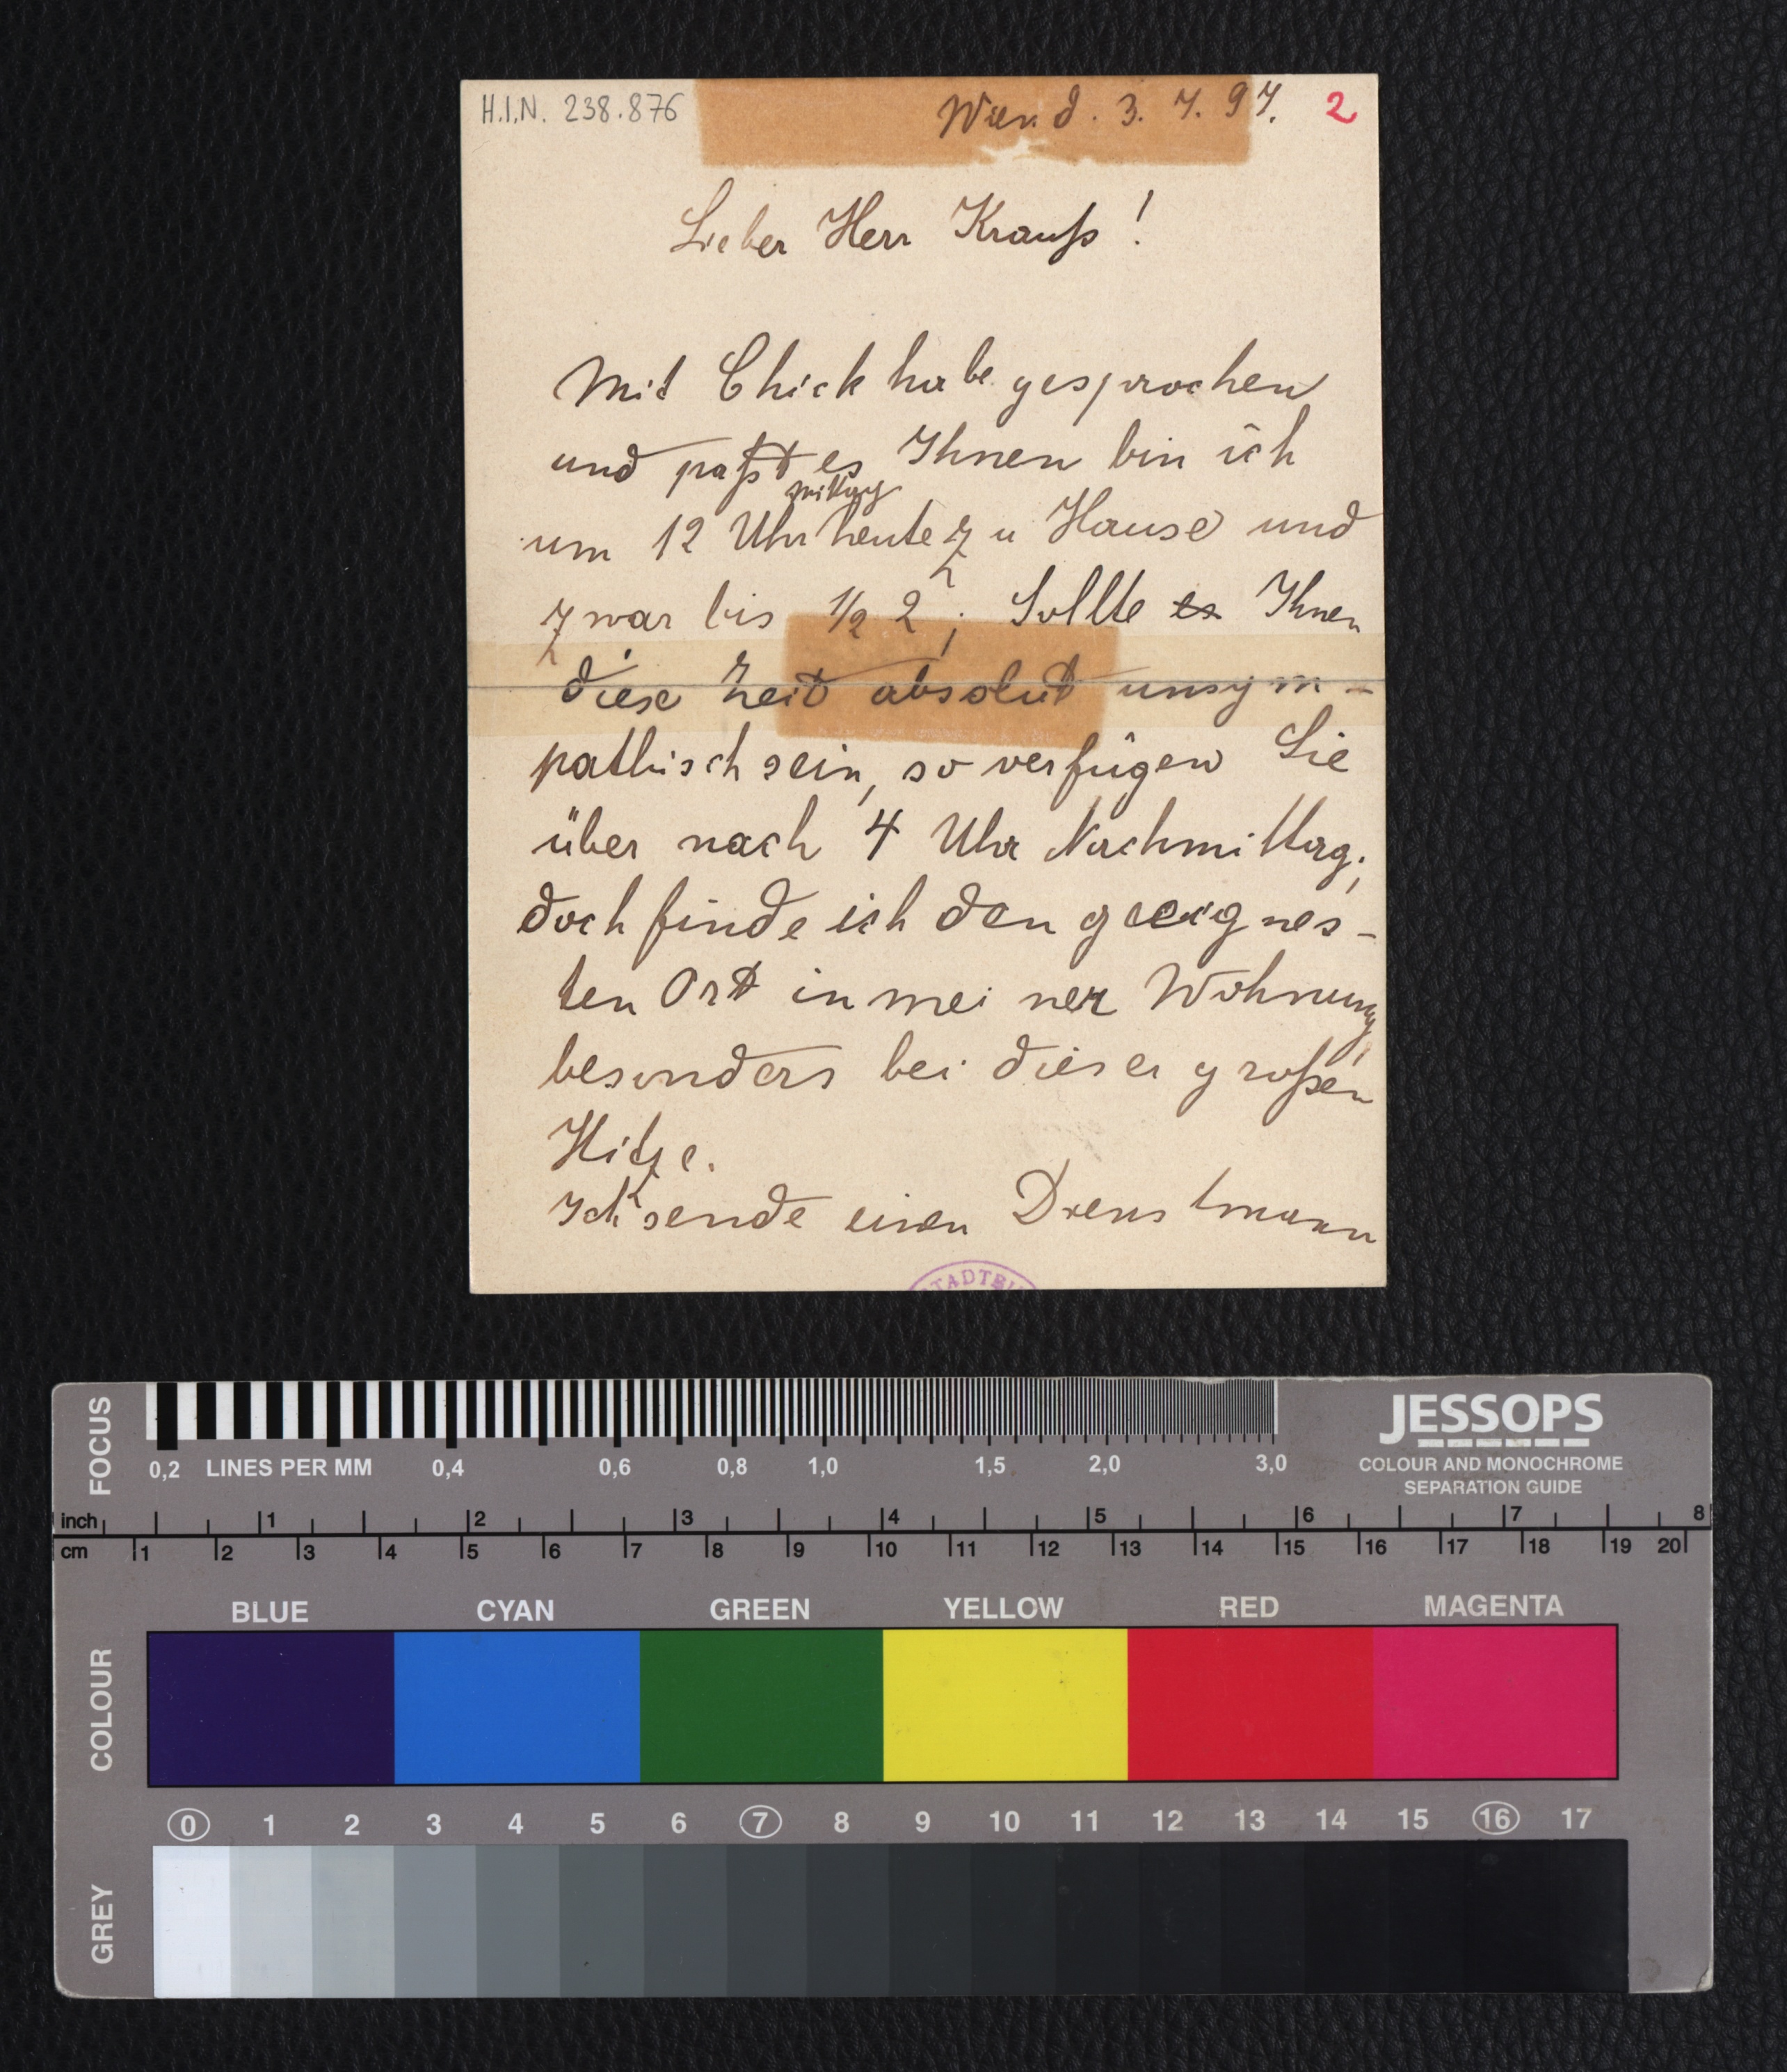 H.I.N. 238.876
Wien d. 3. 7. 97.
2
Lieber Herr Krauß!
Mit Chick habe gesprochen
und paßt es Ihnen bin ich
mittag
um 12 Uhr heute zu Hause und
zwar bis 1/2 2; Sollte es Ihnen
diese Zeit absolut unsym-
pathisch sein, so verfügen Sie
über nach 4 Uhr Nachmittag;
doch finde ich den geeignes-
ten Ort in meiner Wohnung,
besonders bei dieser großen
Hitze.
Ich sende einen Dienstmann
STADTBI
FOCUS
0,2 LINES PER MM 0,4 0,6 0,8 1,0 1,5 2,0 3,0
JESSOPS
COLOUR AND MONOCHROME
SEPARATION GUIDE
inch 1 2 3 4 5 6 7 8
cm 1 2 3 4 5 6 7 8 9 10 11 12 13 14 15 16 17 18 19 20
BLUE CYAN GREEN YELLOW RED MAGENTA
COLOUR
0 1 2 3 4 5 6 7 8 9 10 11 12 13 14 15 16 17
GREY